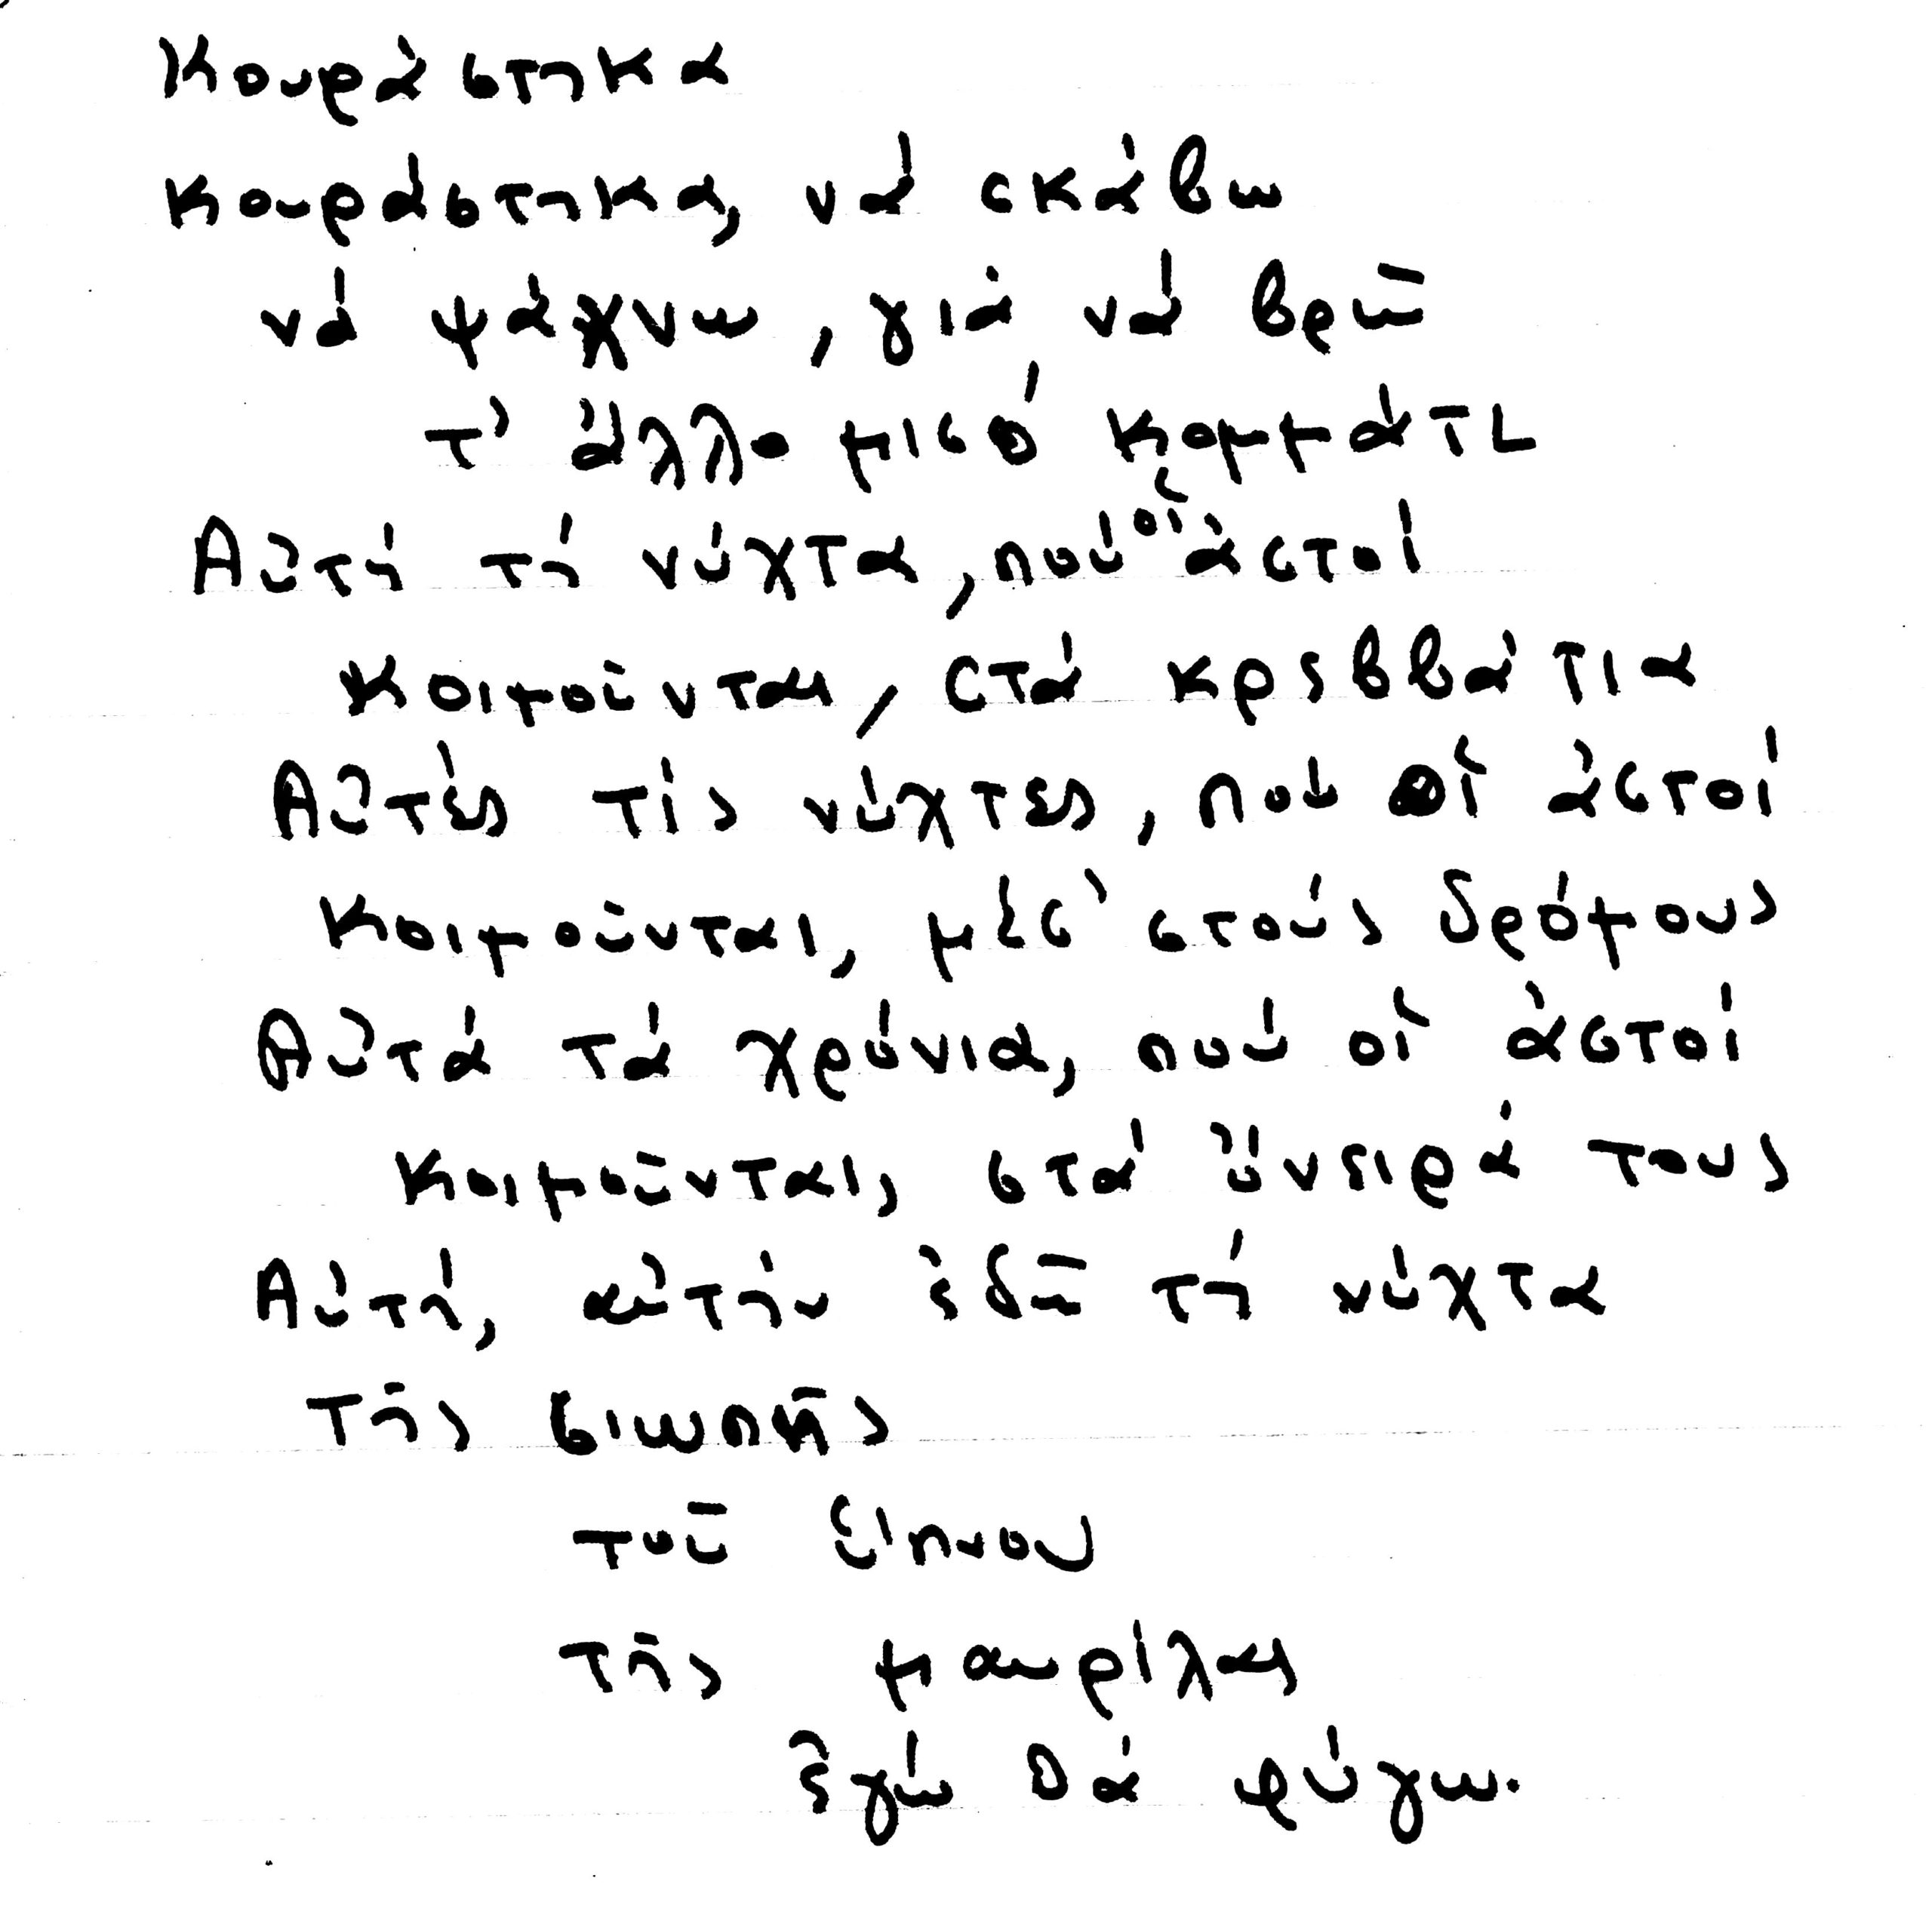 Κουράστηκα
κουράστηκα, νά σκάβω
νά ψάχνω, γιά νά βρῶ
τ' ἄλλο μισό κομμάτι
Αὐτή τή νύχτα, πού οἱ ἀστοί
κοιμοῦνται, στά κρεββάτια
Αὐτές τίς νύχτες, πού οἱ ἀστοί
κοιμοῦνται, μέσ' στούς δρόμους
Αὐτά τά χρόνια, πού οἱ ἀστοί
κοιμοῦνται, στά ὄνειρά τους
Αὐτή, αὐτήν ἐδῶ τή νύχτα
τῆς σιωπῆς
τοῦ ὕπνου
τῆς μαυρίλας
ἐγώ θά φύγω.